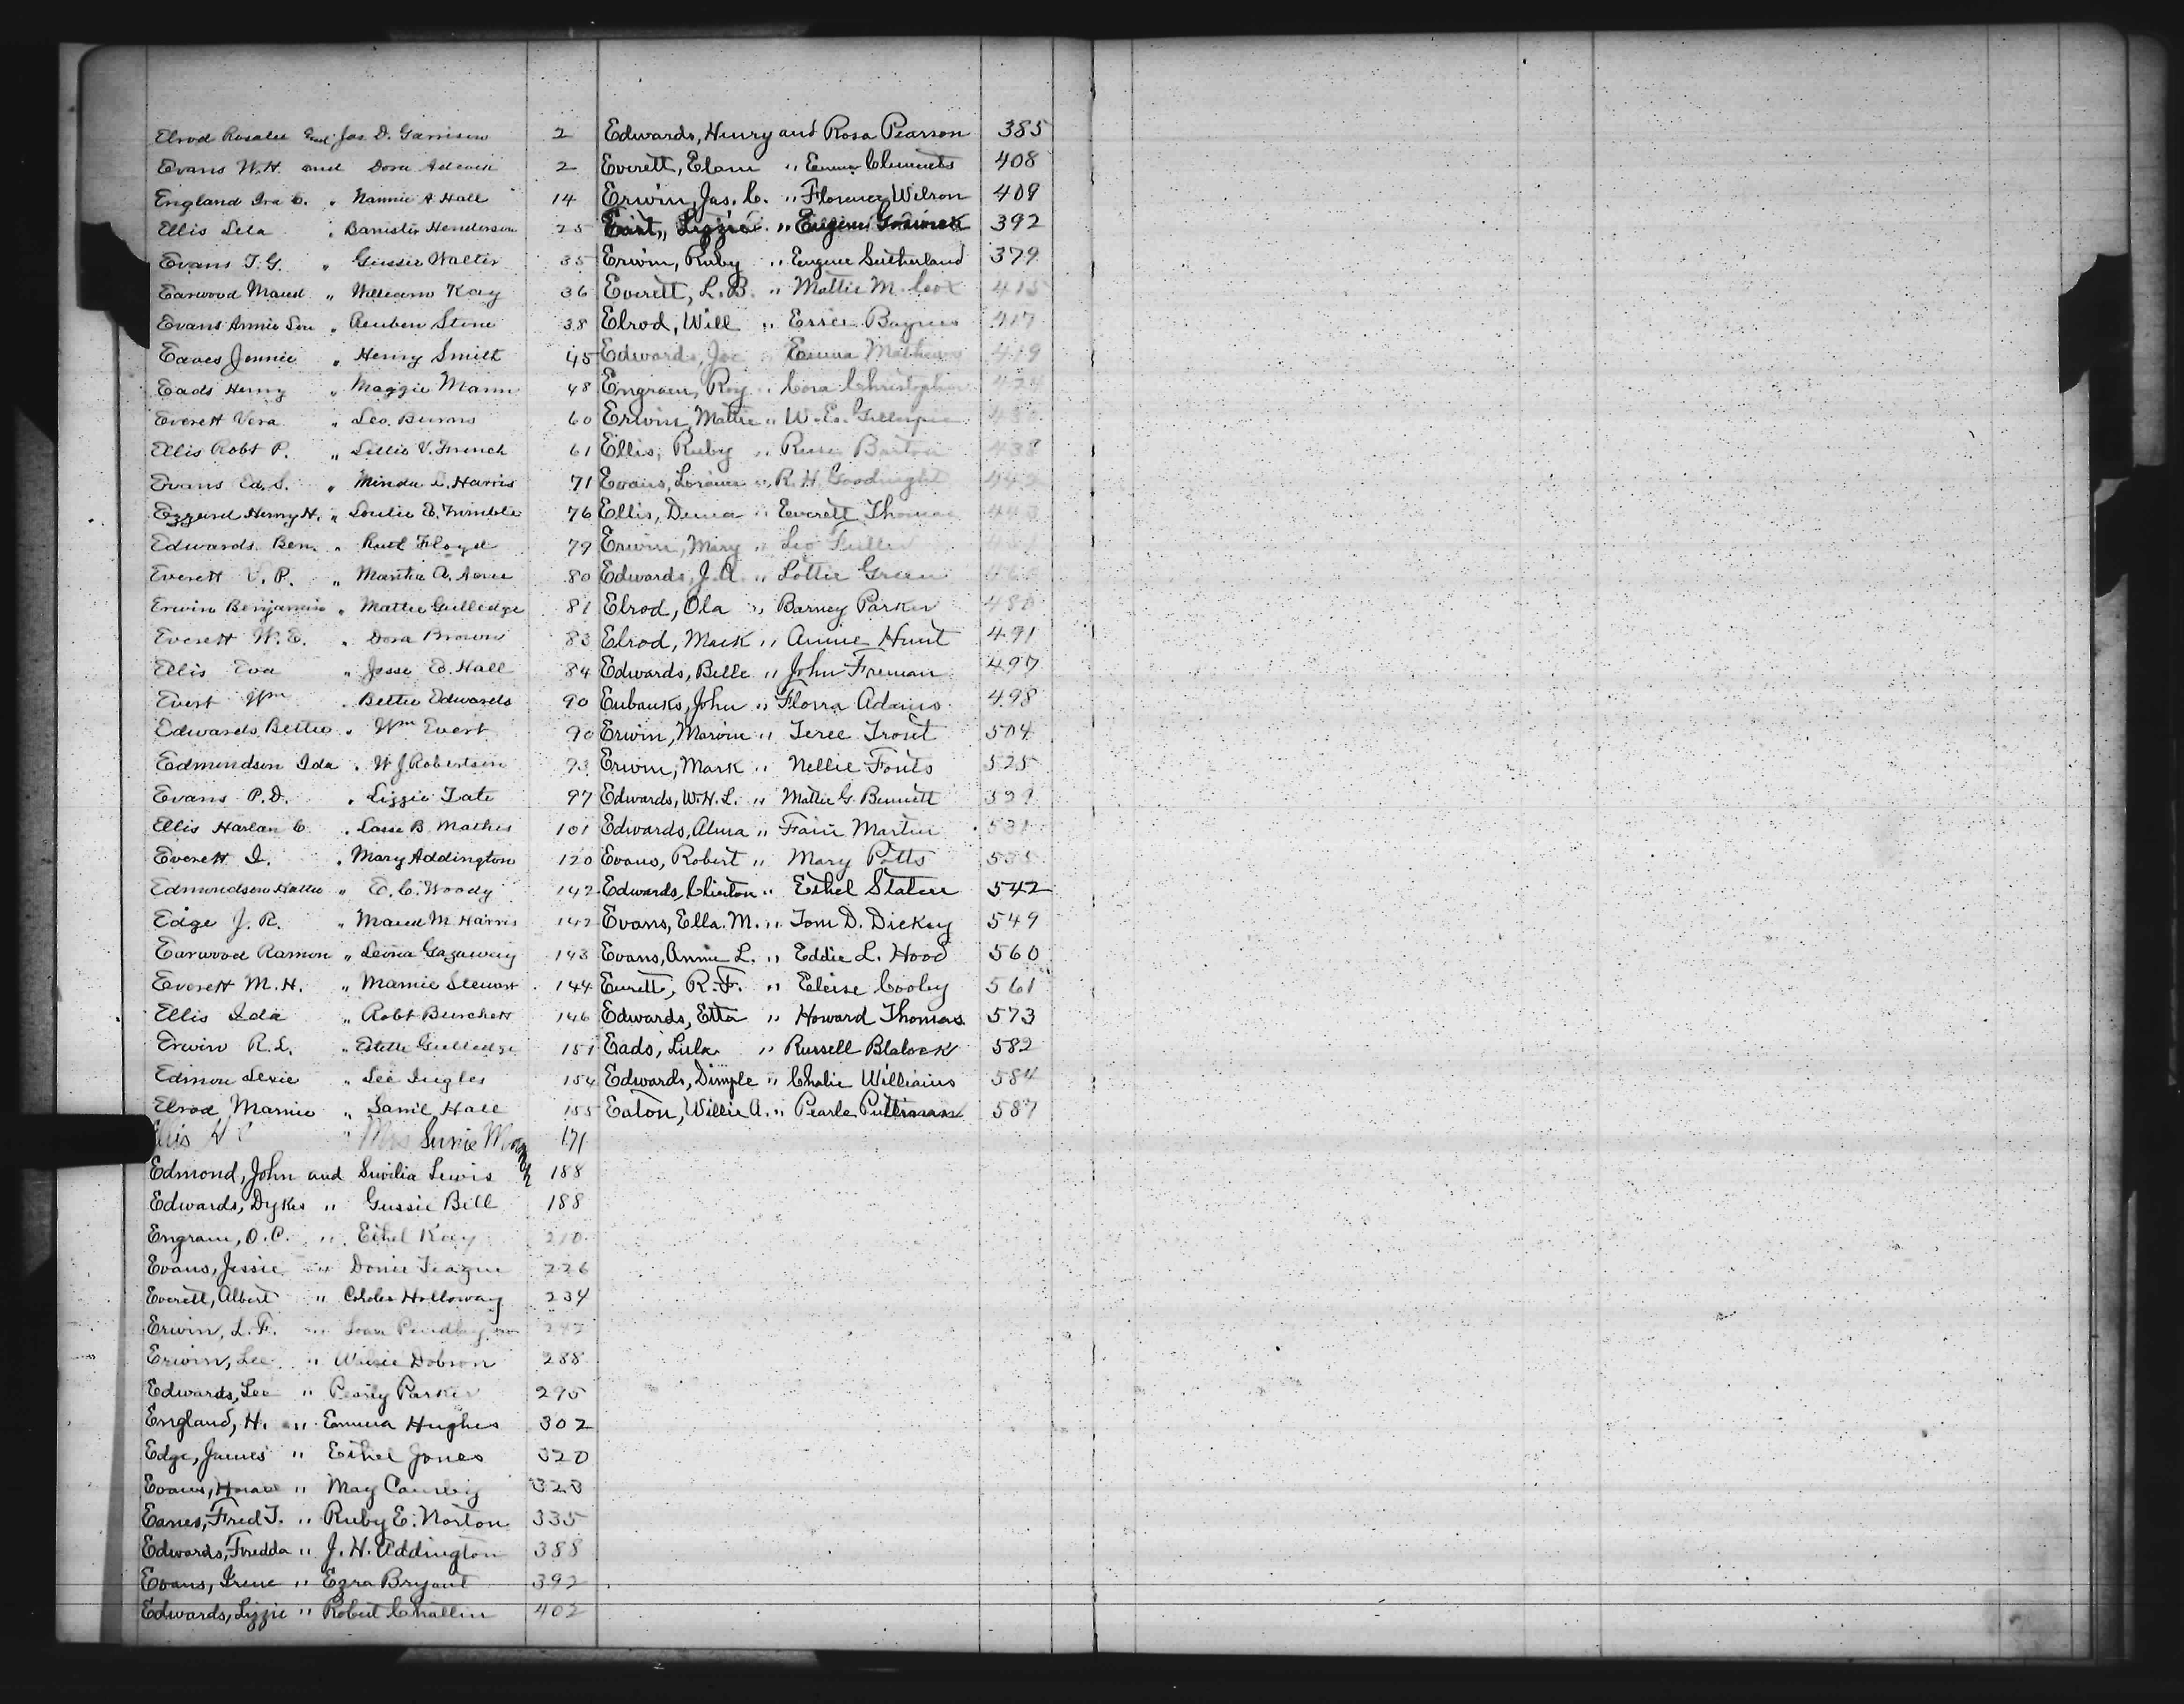 Elrod Rosalee and Jas. D. Garrison 2
Evans W.H. and Dora Adcock 2
England Ira C. " Nannie A Hall 14
Ellis Lela " Banister Henderson 25
Evans T.G. " Gussie Walter 35
Earwood Maud " William Kay 36
Evans Annie Lou " Reuben Stone 38
Eaves Jennie " Henry Smith 45
Eads Henry " Maggie Mann 48
Everett Vera " Leo. Burns 60
Ellis Robt P. " Lillie V. French 61
Evans Ed. S. " Minda E. Harris 71
Ezzard Henry H. " Loulie E. Trimble 76
Edwards Ben. " Ruth Floyd 79
Everett V. P. " Martha A. Acree 80
Erwin Benjamin " Mattie Gulledge 81
Everett W. E. " Dora Brown 83
Ellis Eva " Jesse E. Hall 84
Evert Wm " Bettie Edwards 90
Edwards Bettie " Wm Evert 90
Edmondson Ida " W J Robertson 93
Evans P.D. " Lizzie Tate 97
Ellis Harlan C. " B. Mathis 101
Everett I. " Mary Addington 120
Edmondson Kattie " E. C. Woody 142
Edge J. R. " Maud M. Harris 142
Earwood Ramon " Leona Gazaway 143
Everett M. H. " Mamie Stewart 144
Ellis Ida " Robt Burchett 146
Erwin R. L. " Estelle Gulledge 151
Lexie " Lee Ingles 154
Elrod Mamie " Saml Hall 155
llis H C " Mrs Susie 171
Edmond, John and Lewis 188
Edwards, Dykes " Gussie Bell 188
Engram, O. C. " Ethel Kay 210
Evans, Jessie " Donie Teague 226
Everett, Albert " Holloway 234
Erwin, L. F. "
Erwin, Lee " Dobson 288
Edwards, Lee " Pearly Parker 295
England, H. " Emma Hughes 302
Edge, James " Ethel Jones 320
Evans, Horace " May 323
Eanes, Fred T. " Ruby E. Norton 335
Edwards, Fredda " J. H. Addington 388
Evans, Irene " Ezra Bryant 392
Edwards, Lizzie " Robert Challin 402
Edwards, Henry and Rosa Pearson 385
Everett, Elam " Emma Clements 408
Erwin, Jas. C. " Florence Wilson 409
Lizzie " Eugene 392
Erwin, Ruby " Eugene Sutherland 379
Everett, L. B. " Mattie M. Cox 415
Elrod, Will " Essie Baynes 417
Edwards, Joe " Emma Mathews 419
Engram, Roy " Cora Christopher 424
Erwin, Mattie " W. E. Gillespie
Ellis, Ruby " Barton 438
Evans, " R. H. Goodnight
Ellis, " Everett Thomas
Erwin, Mary " Leo Fuller
Edwards, J. A. " Lottie Green
Elrod, Ola " Barney Parker 480
Elrod, Mack " Annie Hunt 491
Edwards, Belle " John Freman 497
Eubanks, John " Florra Adams 498
Erwin, Marvin " Teree Trout 504
Erwin, Mark " Nellie Fouts 525
Edwards, W. H. L. " Mattie G. Bennett 529
Edwards, Alma " Fain Martin 531
Evans, Robert " Mary Potts 535
Edwards, Clinton " Ethel Staten 542
Evans, Ella. M. " Tom D. Dickey 549
Evans, Annie L. " Eddie L. Hood 560
Everett, R. F. " Eloise Cooley 561
Edwards, Etta " Howard Thomas 573
Eads, Lula " Russell Blalock 582
Edwards, Dimple " Chalie Williams 584
Eaton, Willie A. " Pearle Pittman 587